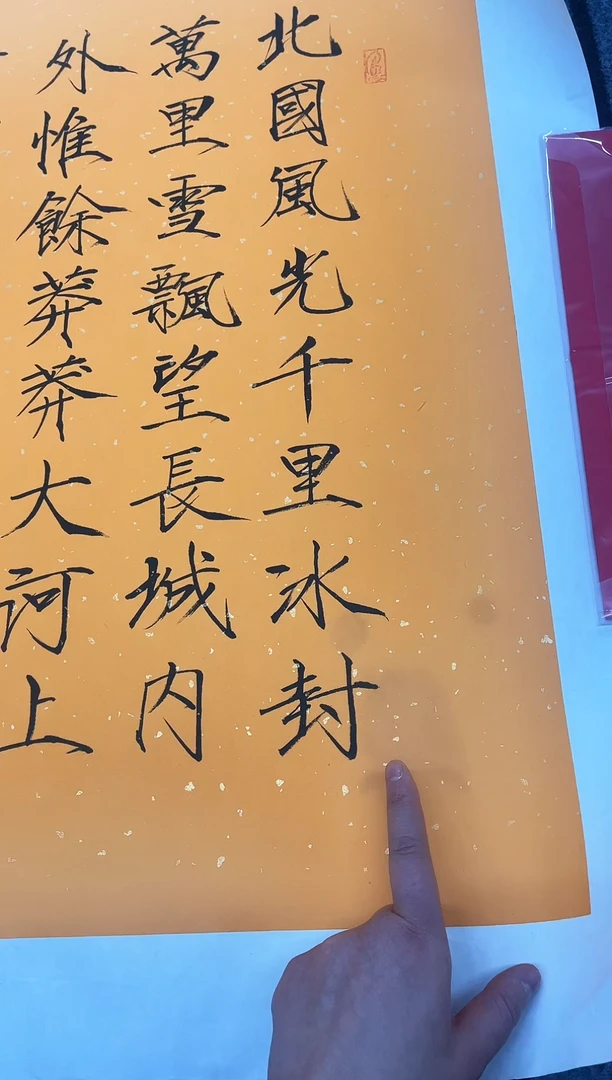 北國風光千里冰封
萬里雪飄望長城内
外惟餘莽莽大河上